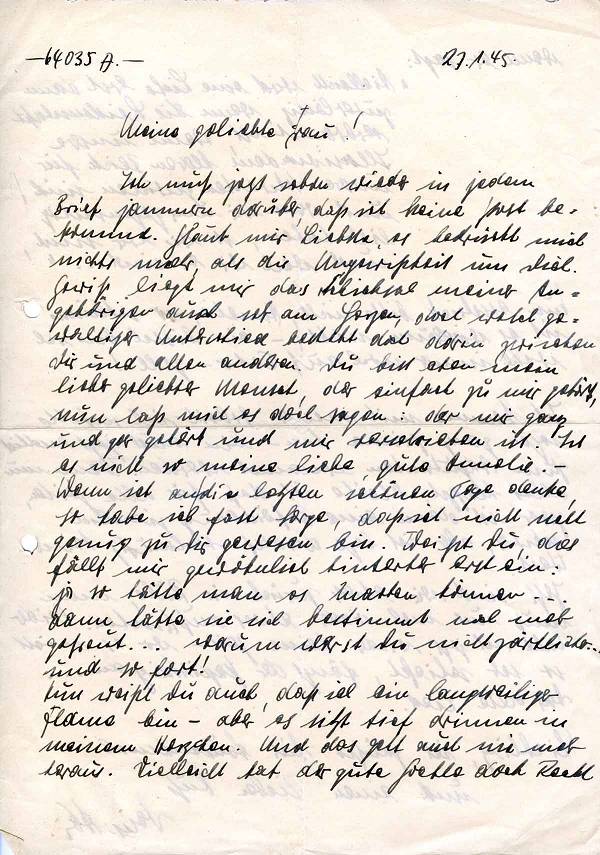 —64035 A.—
27.1.45.
Meine geliebte Frau!
Ich muß jetzt schon wieder in jedem
Brief jammern darüber, daß ich keine Post be-
komme. Glaub mir Liebste, es bedrückt mich
nichts mehr, als die Ungewißheit um Dich.
Gewiß liegt mir das Schicksal meiner An-
gehörigen auch sehr am Herzen, doch welch ge-
waltiger Unterschied besteht doch darin zwischen
Dir und allen anderen. Du bist eben mein
lieber geliebter Mensch, der einfach zu mir gehört,
nun laß mich es doch sagen: der mir ganz
und gar gehört und mir verschrieben ist. Ist
es nicht so meine liebe, gute Annelie. –
Wenn ich an die letzten schönen Tage denke,
so habe ich fast Sorge, daß ich nicht nett
genug zu Dir gewesen bin. Weißt Du, das
fällt mir gewöhnlich hinterher erst ein:
ja so hätte man es machen können ...
dann hätte sie sich bestimmt noch mehr
gefreut... warum warst Du nicht zärtlicher...
und so fort!
Nun weißt Du auch, daß ich ein langweiliger
Flame bin – aber es sitzt tief drinnen in
meinem Herzchen. Und das geht auch nie mehr
heraus. Vielleicht hat der gute Goethe doch Recht